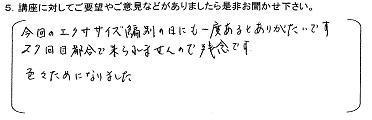 5. 講座に対してご要望やご意見などがありましたら是非お聞かせ下さい。
今回のエクササイズ編別の日にも一度あるとありがたいです
2回目都合で来られませんので残念です
色々ためになりました